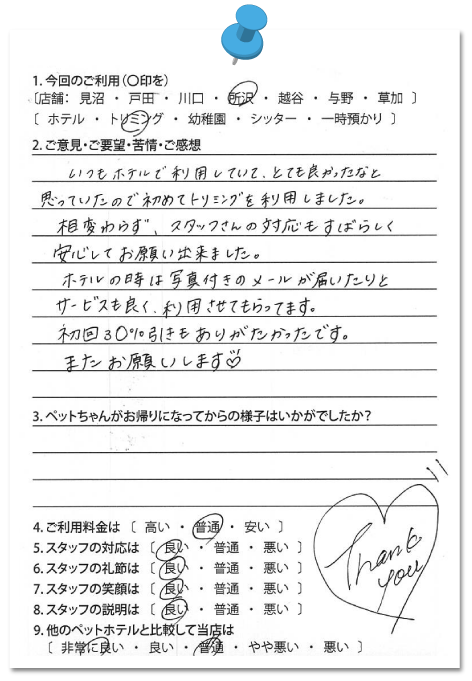 1. 今回のご利用(〇印を)
〔店舗： 見沼 ・ 戸田 ・ 川口 ・ 所沢 ・ 越谷 ・ 与野 ・ 草加 〕
〔 ホテル ・ トリミング ・ 幼稚園 ・ シッター ・ 一時預かり 〕
2. ご意見・ご要望・苦情・ご感想
いつもホテルで利用していて、とても良かったなと
思っていたので初めてトリミングを利用しました。
相変わらず、スタッフさんの対応もすばらしく
安心してお願い出来ました。
ホテルの時は写真付きのメールが届いたりと
サービスも良く、利用させてもらってます。
初回30%引きもありがたかったです。
またお願いします♡
3. ペットちゃんがお帰りになってからの様子はいかがでしたか？
4. ご利用料金は 〔 高い ・ 普通 ・ 安い 〕
5. スタッフの対応は 〔 良い ・ 普通 ・ 悪い 〕
6. スタッフの礼節は 〔 良い ・ 普通 ・ 悪い 〕
7. スタッフの笑顔は 〔 良い ・ 普通 ・ 悪い 〕
8. スタッフの説明は 〔 良い ・ 普通 ・ 悪い 〕
9. 他のペットホテルと比較して当店は
〔 非常に良い ・ 良い ・ 普通 ・ やや悪い ・ 悪い 〕
Thank
you